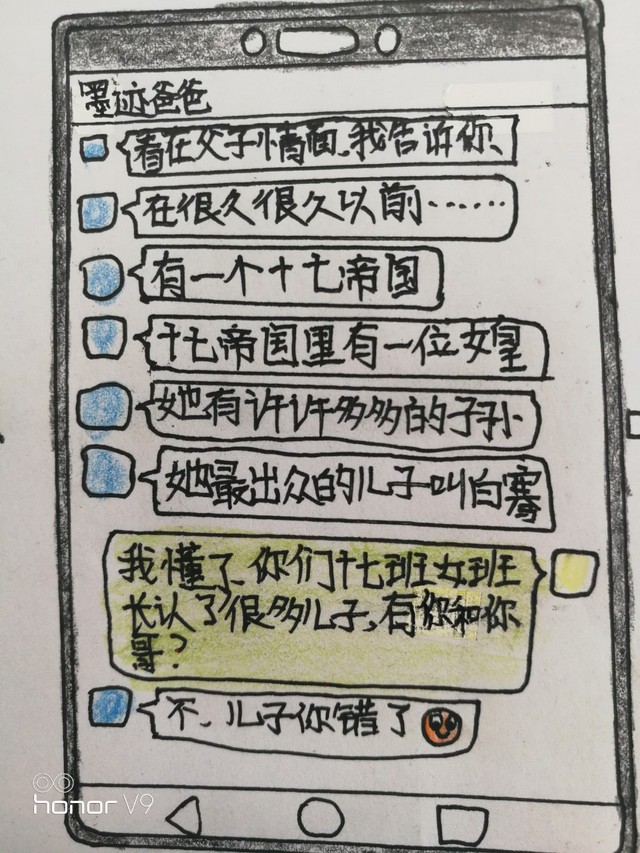 墨迹爸爸
看在父子情面、我告诉你、
在很久很久以前……
有一个十七帝国
十七帝国里有一位女皇
她有许许多多的子孙
她最出众的儿子叫白骞
我懂了、你们十七班女班
长认了很多儿子,有你和你
哥?
不、儿子你错了
honor V9